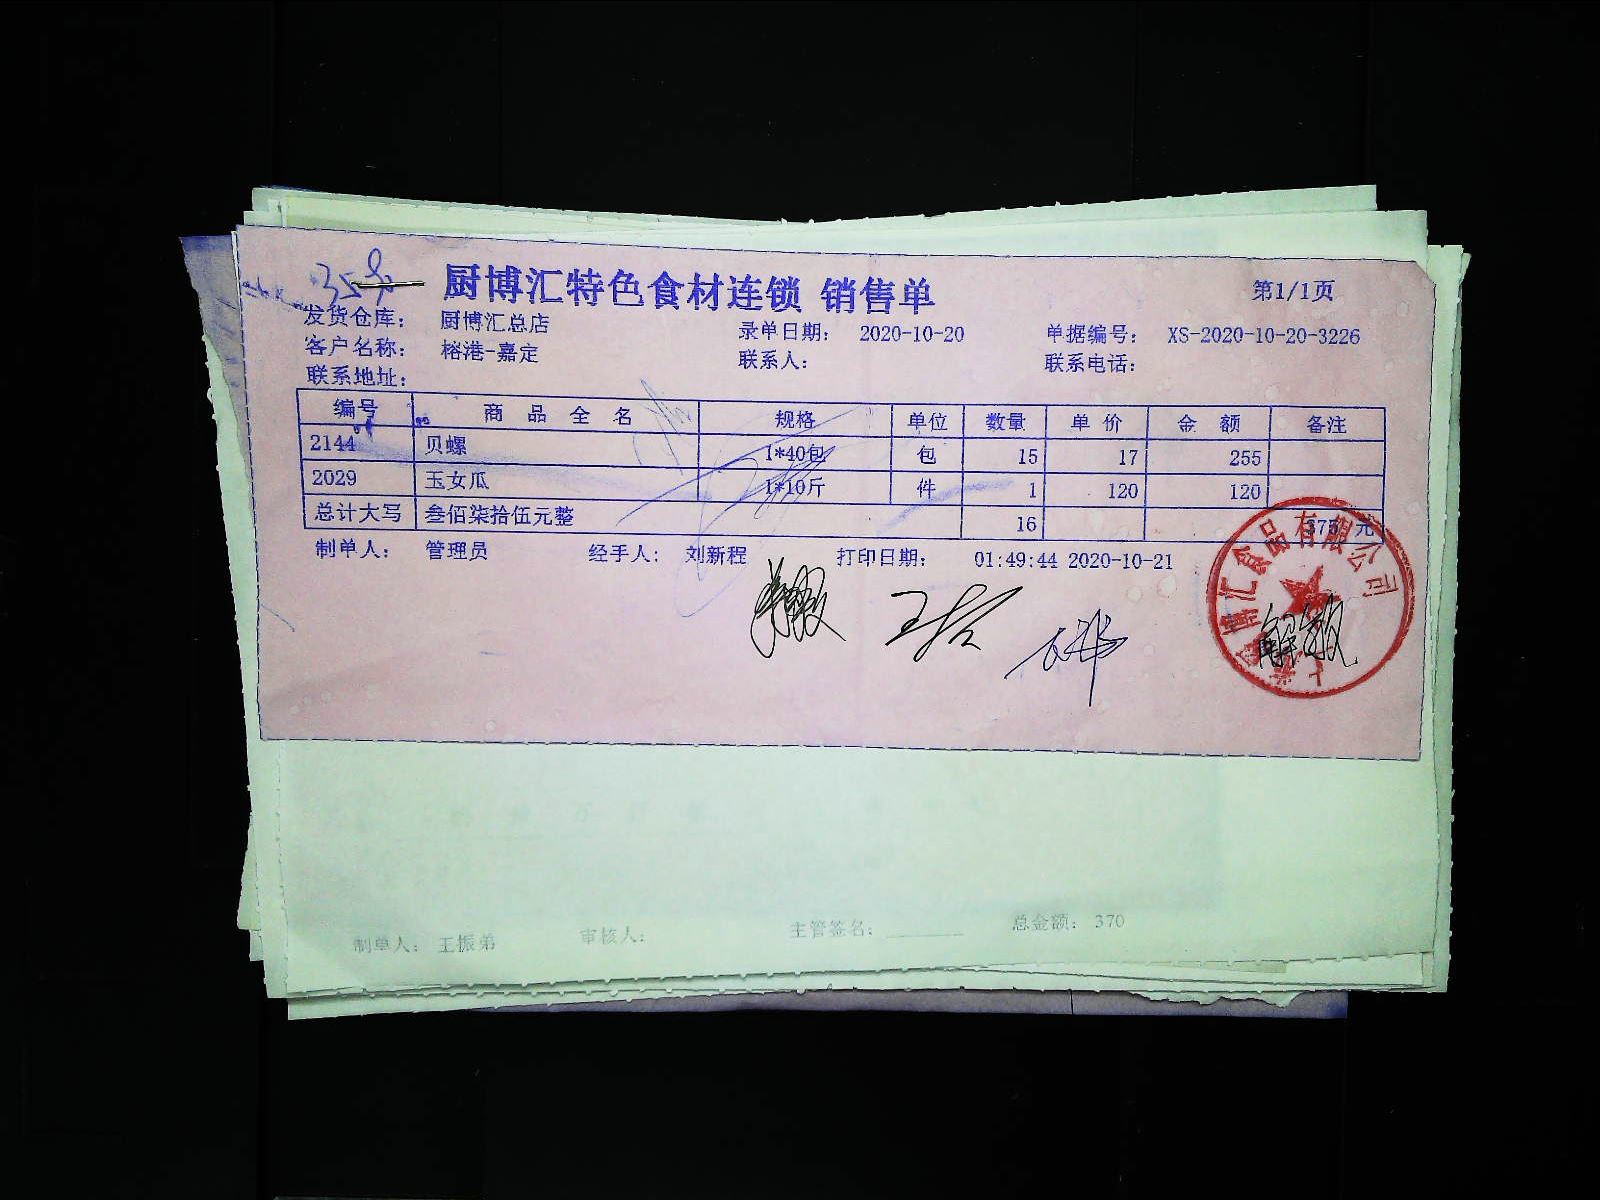 厨博汇特色食材连锁 销售单
第1/1页
发货仓库： 厨博汇总店 录单日期： 2020-10-20 单据编号： XS-2020-10-20-3226
客户名称： 榕港-嘉定 联系人： 联系电话：
联系地址：
编号 商品全名 规格 单位 数量 单价 金额 备注
2144 贝螺 1*40包 包 15 17 255
2029 玉女瓜 1*10斤 件 1 120 120
总计大写 叁佰柒拾伍元整 16 375 元
制单人： 管理员 经手人： 刘新程 打印日期： 01:49:44 2020-10-21
博汇食品有限公司
制单人： 王振弟 审核人： 主管签名： 总金额： 370